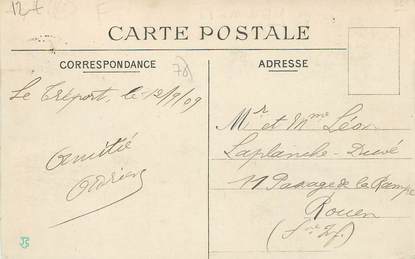 12+
CARTE POSTALE
CORRESPONDANCE
ADRESSE
78
Le Tréport, le 12/9/09
Amitié
Adrien
Mr et Mme Léon
Laplanche-
11 Passage de la Rampe
Rouen
(Sre Inf.)